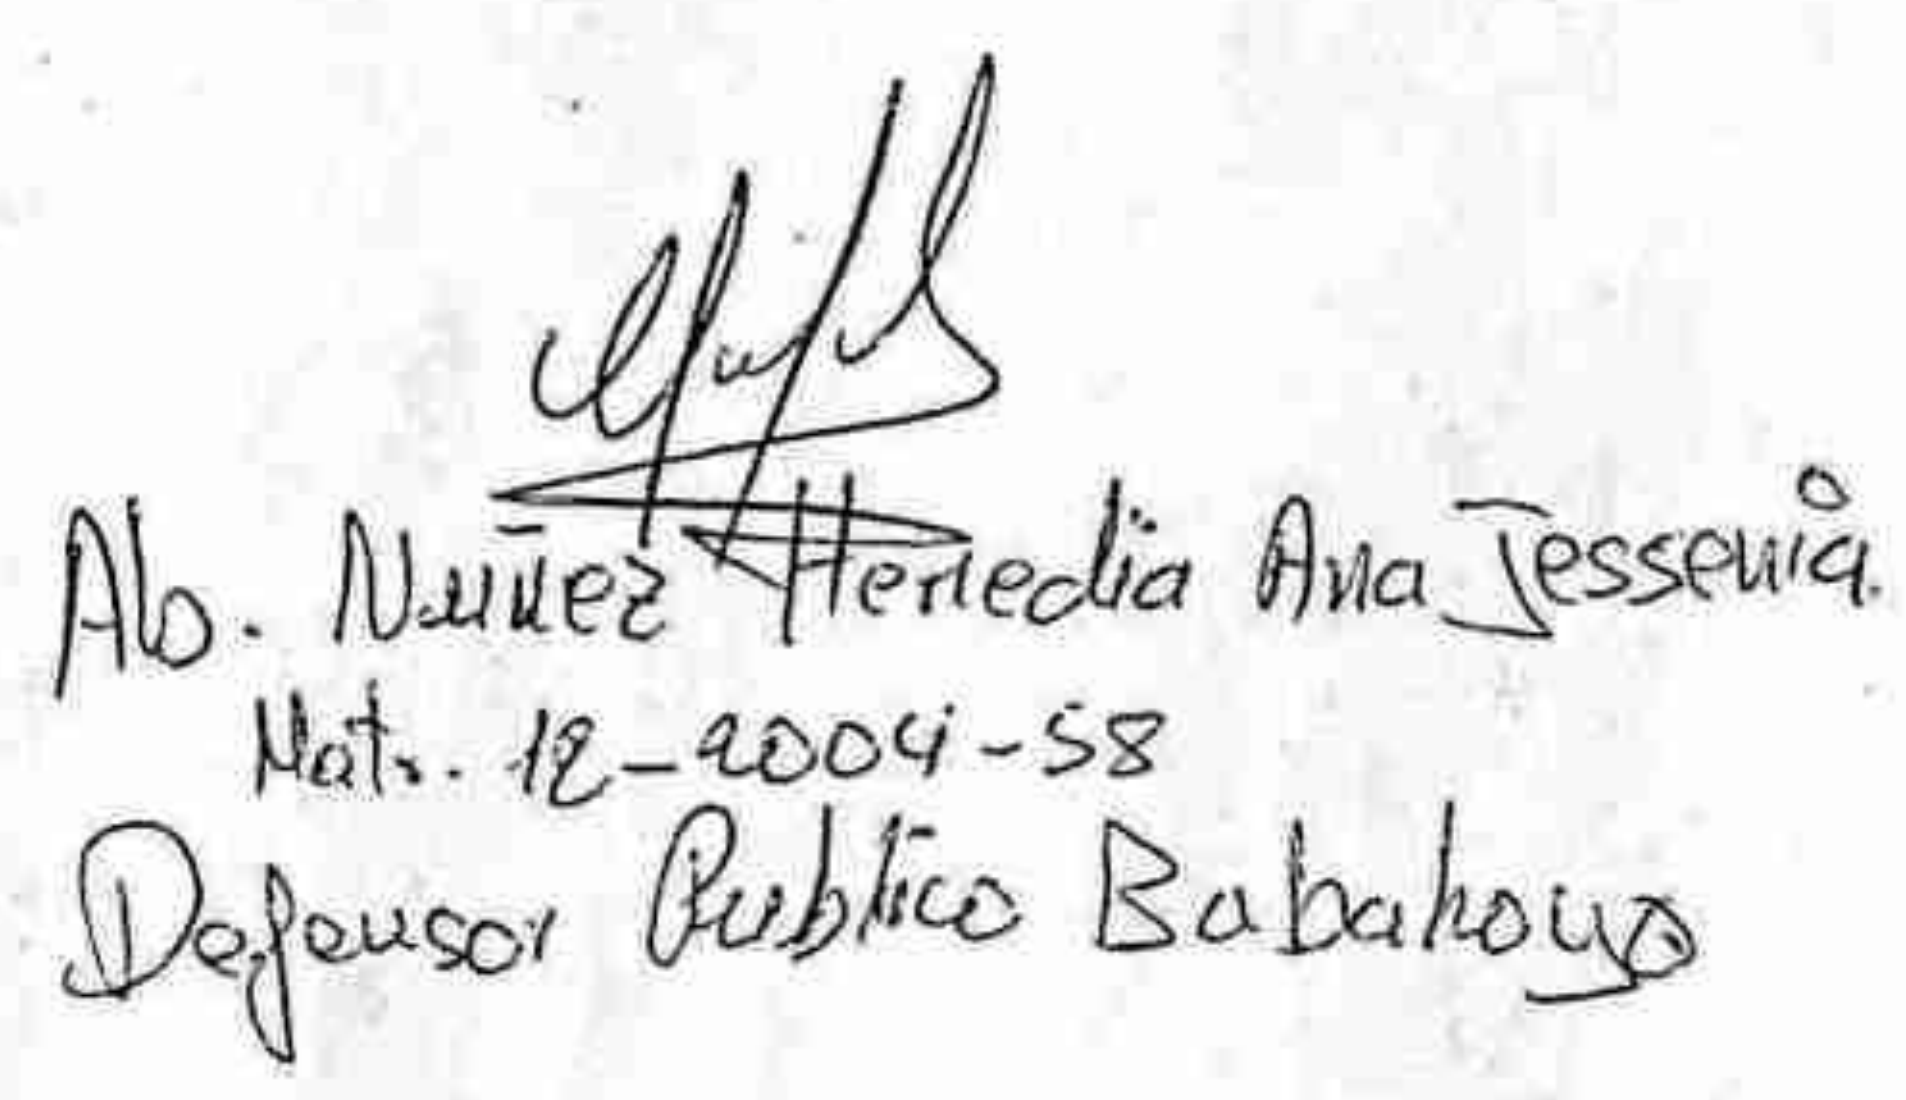 Ab. Nuñez Heredia Ana Jessenia.
Mat. 12-2004-58
Defensor Publico Babahoyo